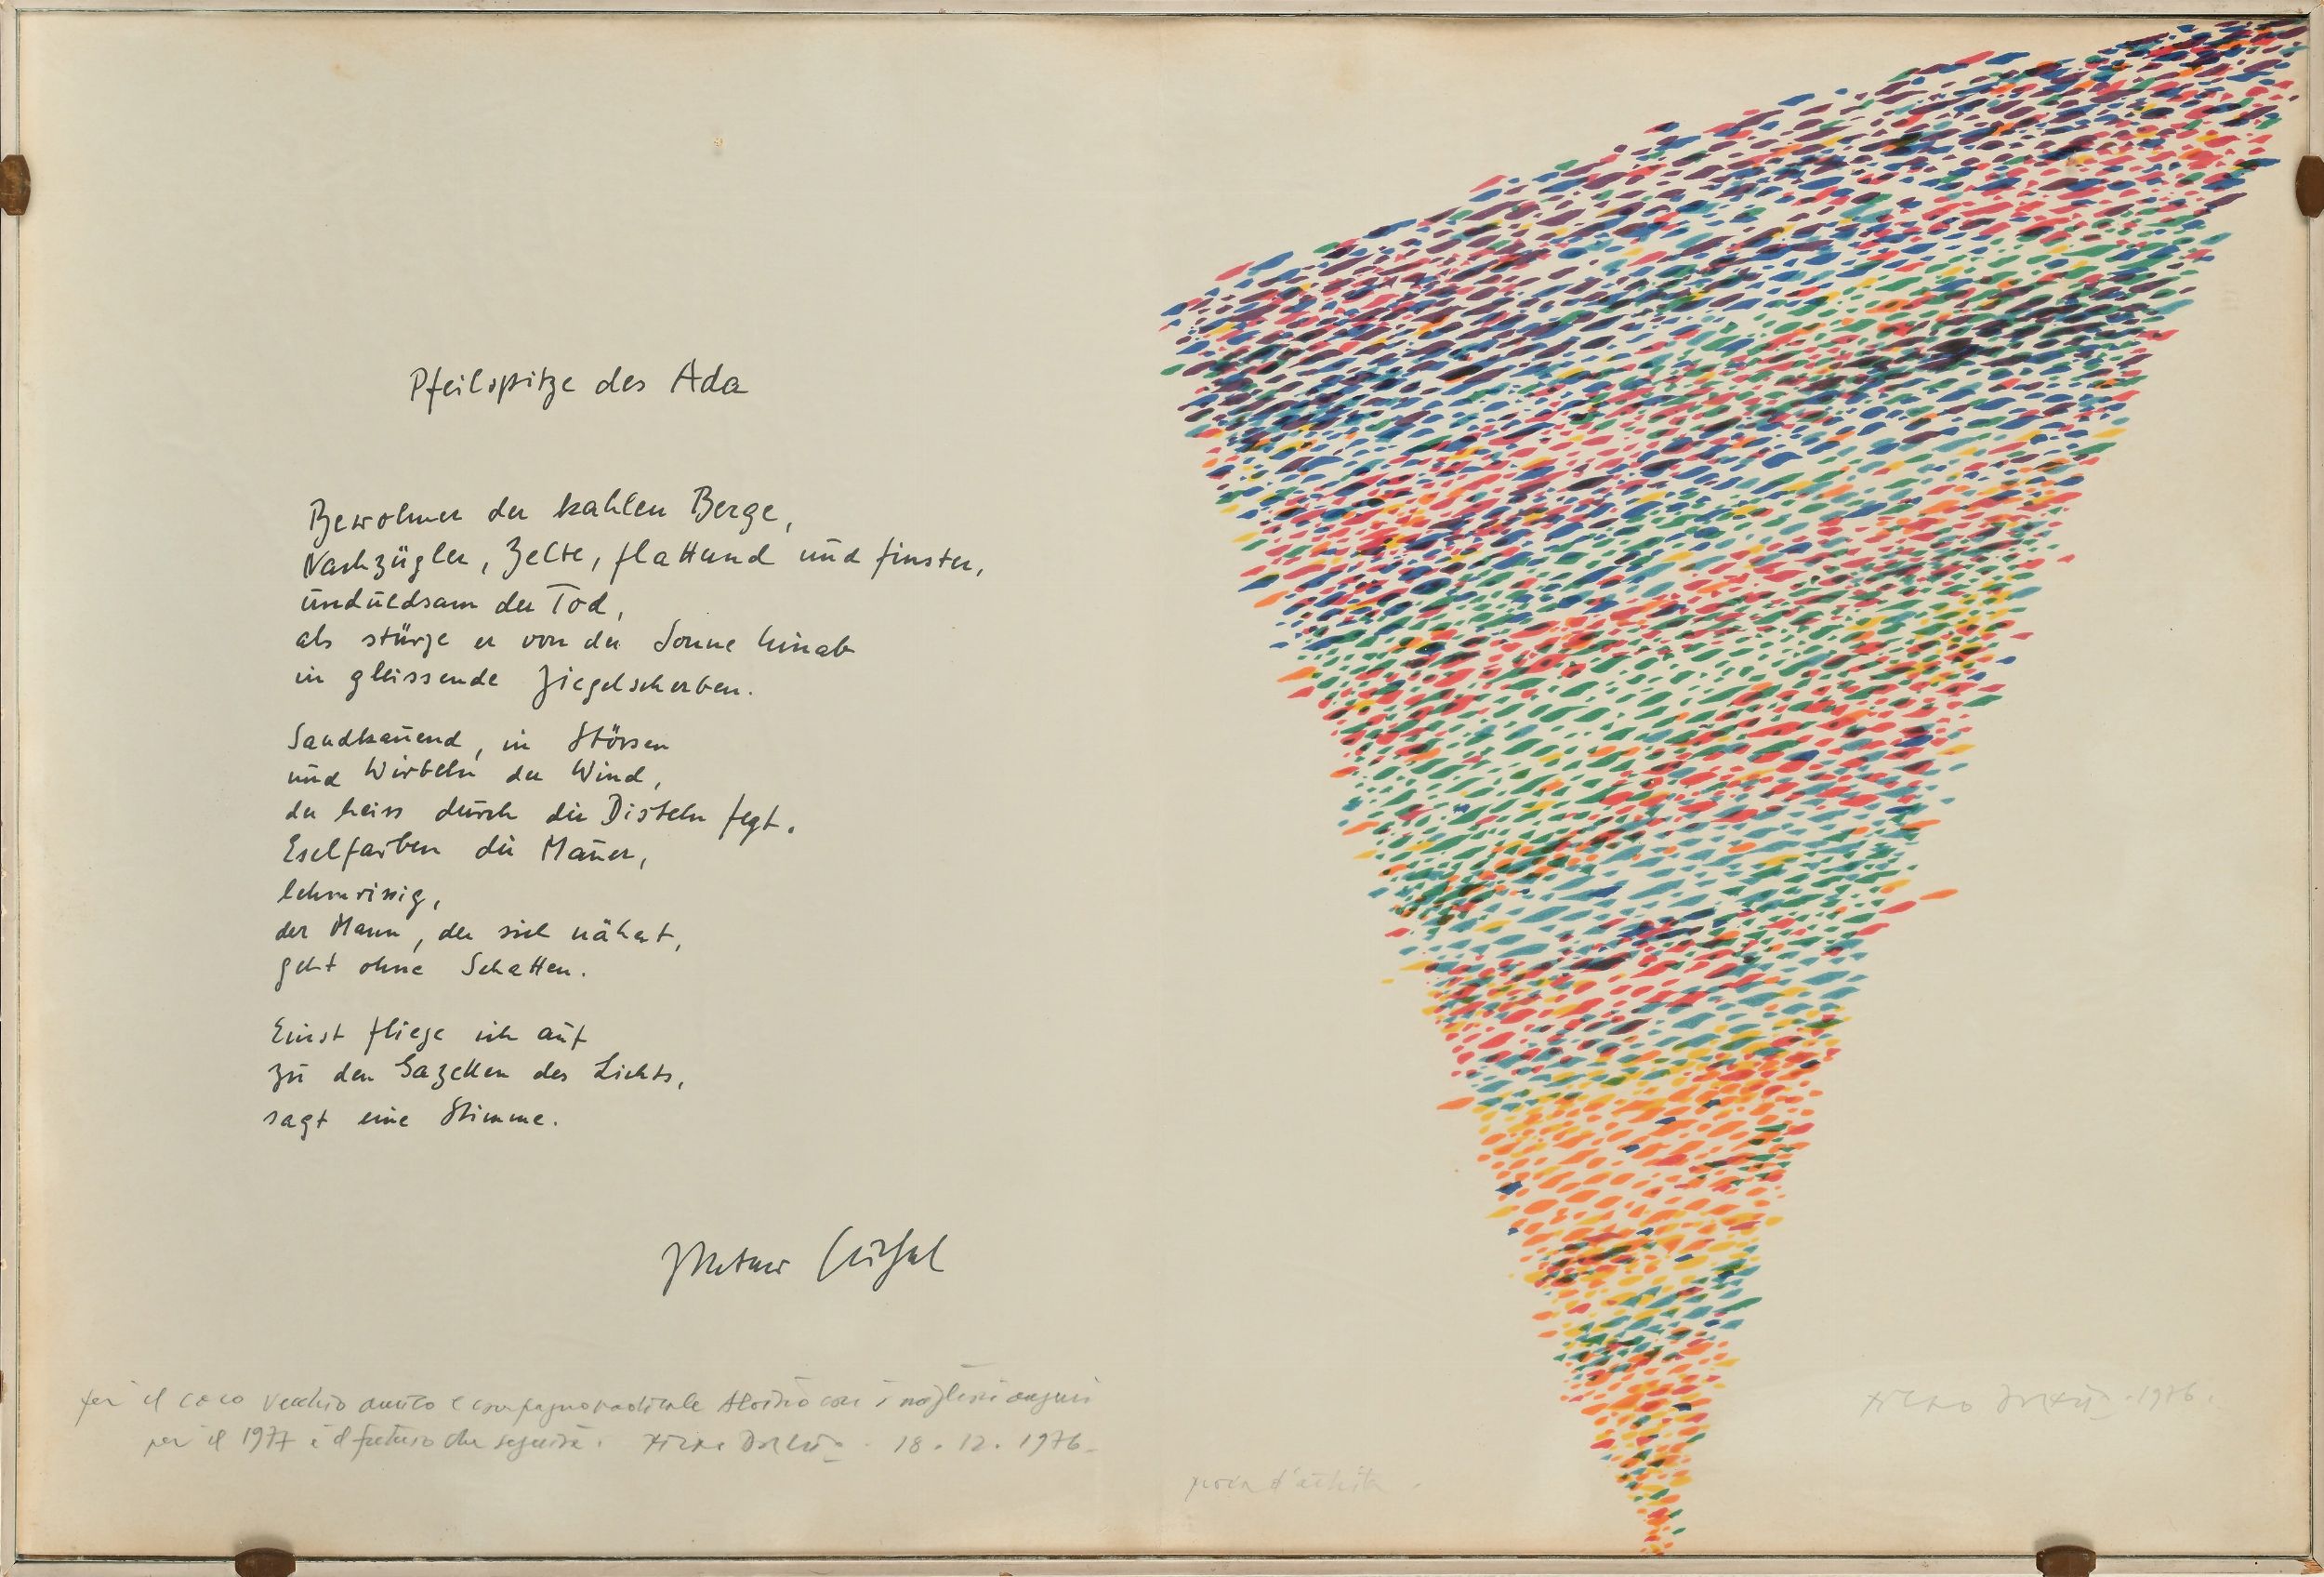 Pfeilspitze des Ada
Bewohner der kahlen Berge,
Nachzügler, Zelte, flatternd und finster,
unduldsam der Tod,
als stürze er von der Sonne hinab
in gleissende Ziegelscherben.
Sandkauend, in Stössen
und Wirbeln der Wind,
der heiss durch die Disteln fegt.
Eselfarben die Mauer,
lehmrissig,
der Mann, der sich nähert,
geht ohne Schatten.
Einst fliege ich auf
zu den Gazellen des Lichts,
sagt eine Stimme.
per il caro vecchio amico e compagno Aloisio con i migliori auguri
per il 1977 e il futuro che seguirà. Piero Dorazio 18.12.1976
prova d'artista
Piero Dorazio 1976